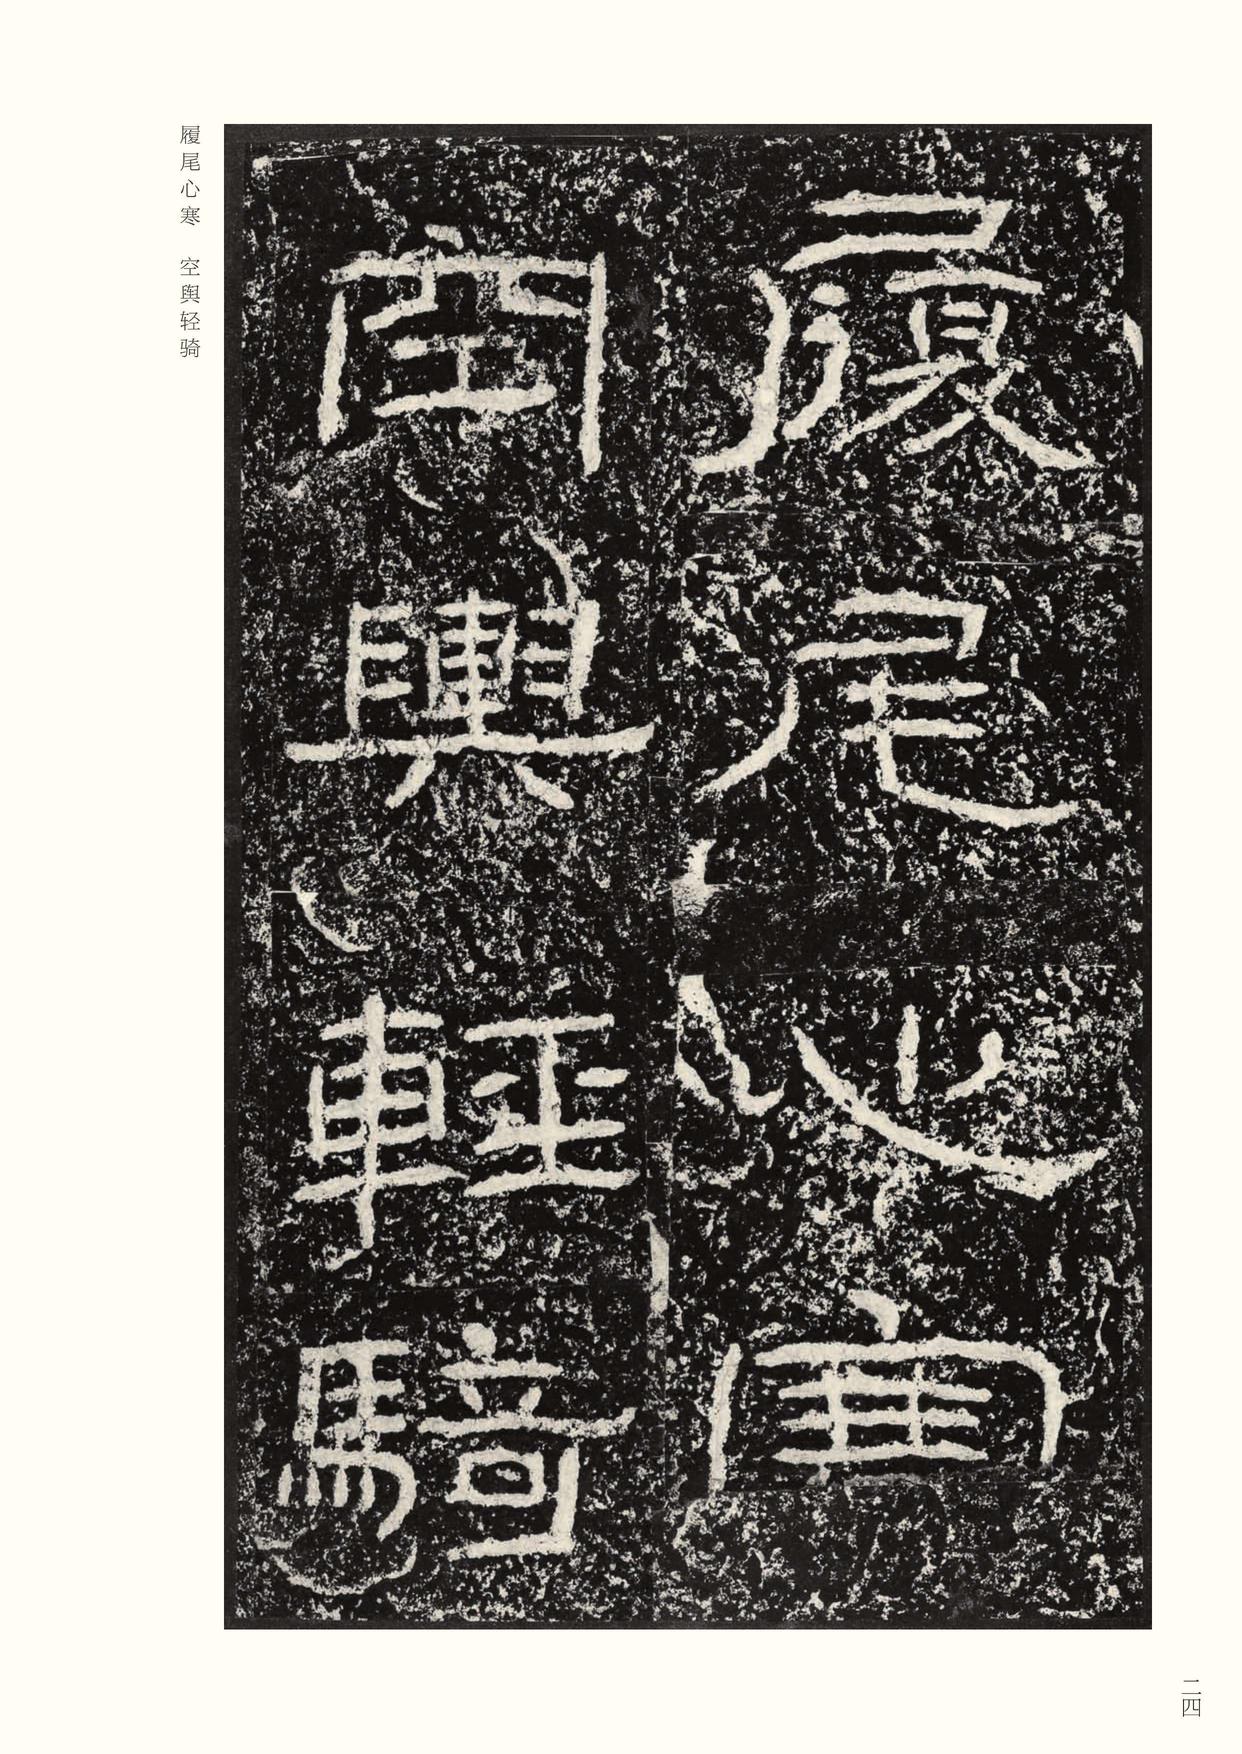 履尾心寒
空輿輕騎
履尾心寒　空舆轻骑
二四